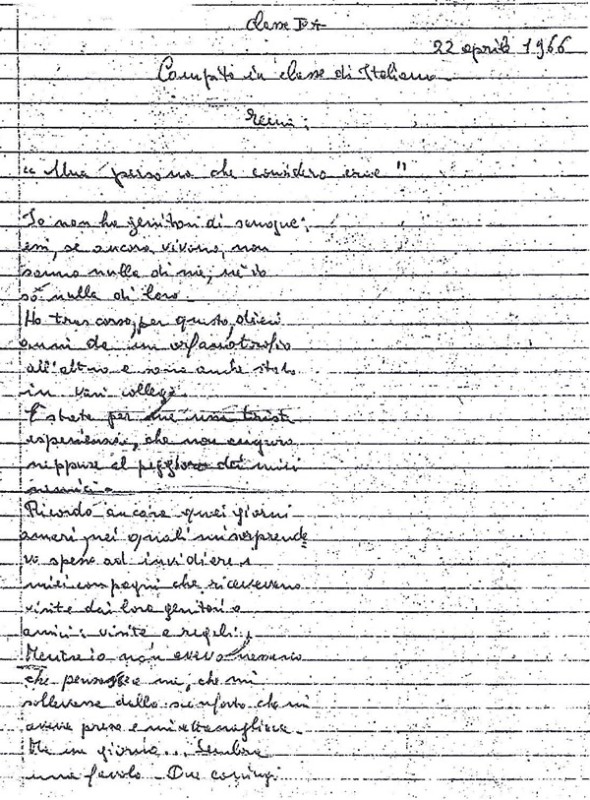 Classe IV A
22 aprile 1966
Compito in classe di Italiano
Tema:
"Una persona che considero eroe"
Io non ho genitori di sangue:
essi, se ancora vivono, non
sanno nulla di me, né io
sò nulla di loro.
Ho trascorso, per questo, dieci
anni da un orfanotrofio
all'altro e sono anche stato
in vari collegi.
È stata per me una triste
esperienza, che non auguro
neppure al peggiore dei miei
nemici.
Ricordo ancora quei giorni
amari nei quali mi sorprende
vo spesso ad invidiare i
miei compagni che ricevevano
visite dai loro genitori o
amici: visite e regali;
Mentre io non avevo nessuno
che pensasse a me, che mi
sollevasse dallo sconforto che mi
aveva preso e mi attanagliava.
Ma un giorno... Sembra
una favola - Due coniugi